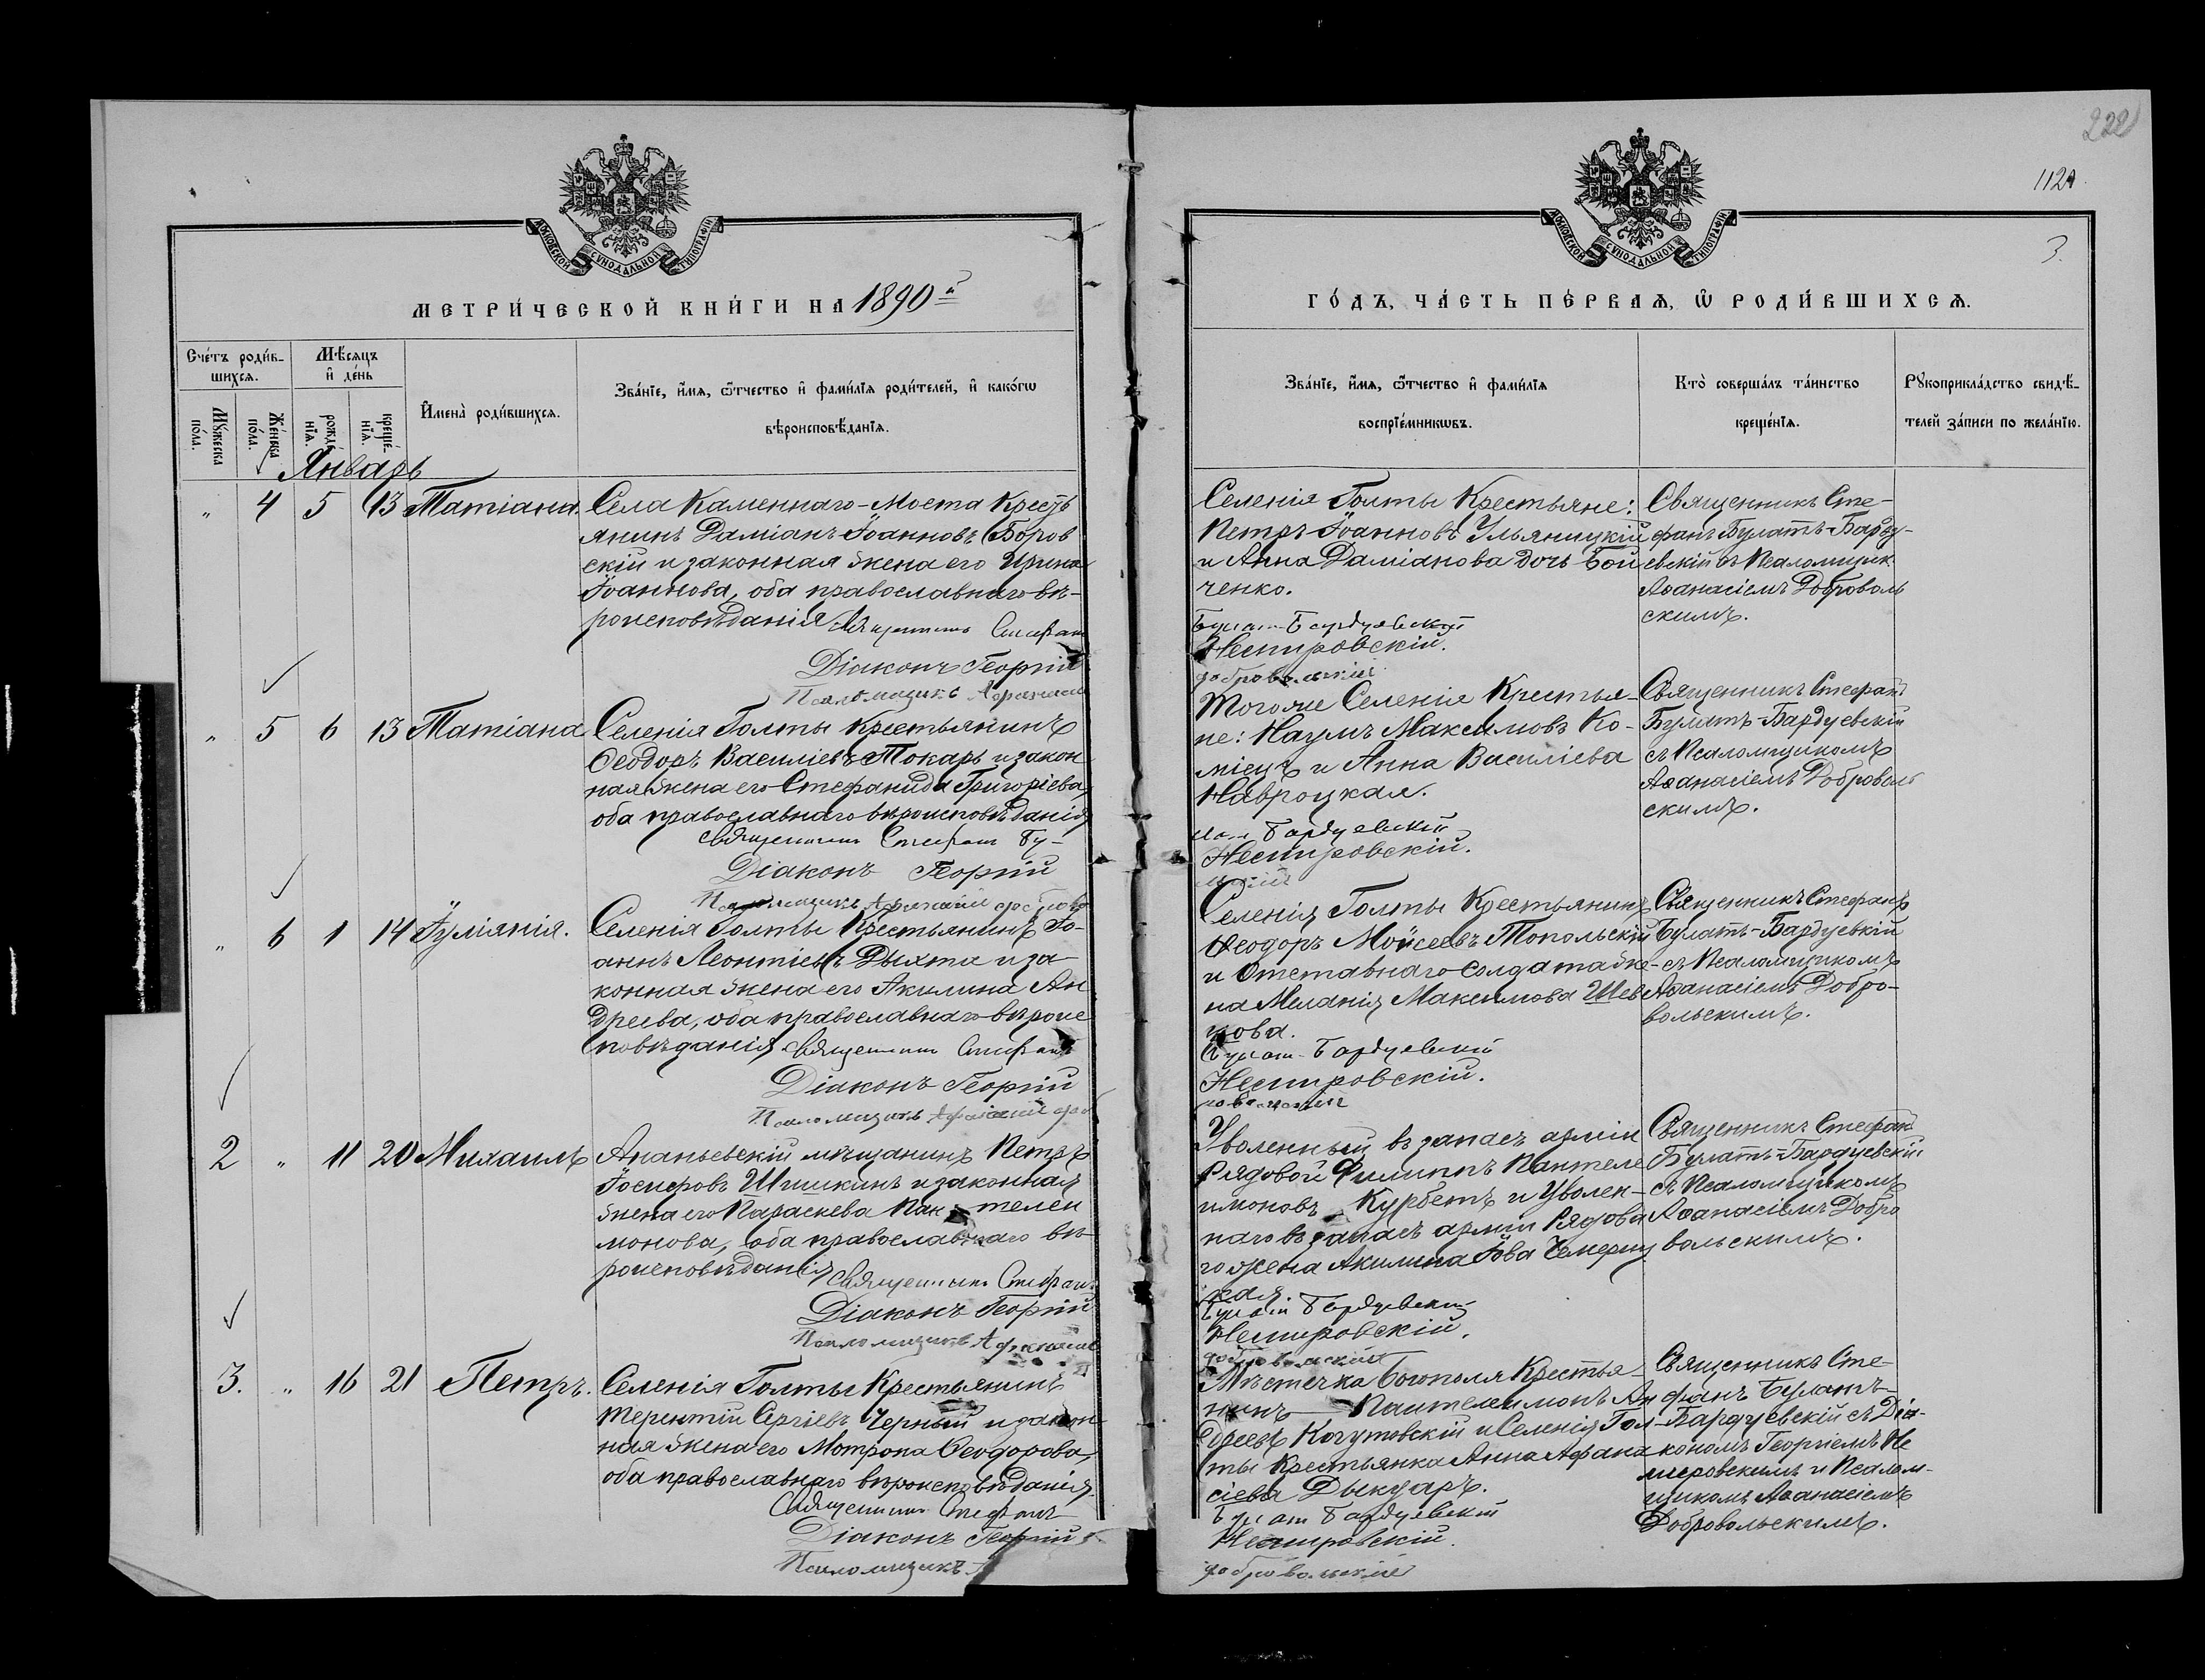 222
112
3.
МОСКОВСКОЙ СѴНОДАЛЬНОЙ ТИПОГРАФІИ
МОСКОВСКОЙ СѴНОДАЛЬНОЙ ТИПОГРАФІИ
МЕТРИ́ЧЕСКОЙ КНИ́ГИ НА 1890 й
ГО́ДЪ, ЧА́СТЬ ПЕ́РВАѦ, Ѽ РОДИ́ВШИХСѦ.
Сче́тъ роди́в-
шихсѧ.
Мꙋжеска по́ла.
Же́нска по́ла.
Мѣ́сѧцъ
и҆ де́нь
рожде́нїѧ.
креще́нїѧ.
И҆мена̀ роди́вшихсѧ.
Зва́нїе, и҆́мѧ, ѻ҆́тчество и҆ фами́лїѧ роди́телей, и҆ како́гѡ
вѣроисповѣ́данїѧ.
Зва́нїе, и҆́мѧ, ѻ҆́тчество и҆ фами́лїѧ
воспрїе́мникѡвъ.
Кто̀ соверша́лъ та́инство
креще́нїѧ.
Рꙋкоприкла́дство свидѣ́-
телей за́писи по жела́нїю.
Январь
" 4 5 13 Татіана.
Села Каменнаго-Моста Кресть
янинъ Даміанъ Іоанновъ Боров
скій и законная жена его Ирина
Іоаннова, оба православнаго вѣ-
роисповѣданія. Священникъ Стефанъ
Діаконъ Георгій
Псаломщикъ Афанасій
Селенія Голты Крестьяне:
Петръ Іоанновъ Ульяницкій
и Анна Даміанова дочь Бой
ченко.
Булат-Бардуевскій
Немировскій.
Добровольскій
Священникъ Сте-
фанъ Булатъ-Барду-
евскій съ Псаломщик.
Аѳанасіемъ Доброволь
скимъ.
" 5 6 13 Татіана
Селенія Голты Крестьянинъ
Ѳеодоръ Василіевъ Токарь и закон
ная жена его Стефанида Григоріева,
оба православнаго вѣроисповѣданія
Священникъ Стефанъ Бу-
Діаконъ Георгій
Псаломщикъ Афанасій Доброво
Тогоже Селенія Крестья-
не: Наумъ Максимовъ Ко-
міецъ и Анна Василіева
Навроцкая.
лат Бардуевскій
Немировскій.
льскій
Священникъ Стефанъ
Булатъ-Бардуевскій
съ Псаломщикомъ
Аѳанасіемъ Доброволь
скимъ.
" 6 1 14 Іуліанія.
Селенія Голты Крестьянинъ Іо-
аннъ Леонтіевъ Дыхта и за
конная жена его Акилина Ан
дреева, оба православнаго вѣроис
повѣданія. Священникъ Стефанъ
Діаконъ Георгій
Псаломщикъ Афанасій Доб
Селенія Голты Крестьянинъ
Ѳеодоръ Мойсеевъ Топольскій
и Отставнаго Солдата же-
на Меланія Максимова Шев
цова.
Булат-Бардуевскій
Немировскій.
ровольскій
Священникъ Стефанъ
Булатъ-Бардуевкій
съ Псаломщикомъ
Аѳанасіемъ Добро-
вольскимъ.
2 " 11 20 Михаилъ
Ананьевскій мѣщанинъ Петръ
Іосифовъ Шишкинъ и законная
жена его Параскева Пан телеи
монова, оба православнаго вѣ-
роисповѣданія Священникъ Стефанъ
Діаконъ Георгій
Псаломщикъ Афанасій
Уволенный въ запасъ арміи
Рядовой Филиппъ Пантеле
имоновъ Курбетъ и Уволен-
наго въ запасъ арміи Рядова
го жена Акилина Іова Чемериц
кая.
Булат Бардуевскій
Немировскій.
Добровольскій
Священникъ Стефанъ
Булатъ-Бардуевскій
съ Псаломщикомъ
Аѳанасіемъ Добро
вольскимъ.
3. " 16 21 Петръ.
Селенія Голты Крестьянинъ
Терентій Сергіевъ Черный и закон
ная жена его Мотрона Ѳеодорова,
оба православнаго вѣроисповѣданія.
Священникъ Стефанъ
Діаконъ Георгій
Псаломщикъ А
Мѣстечка Богополя Крестья-
нинъ Пантелеимонъ Ан
дреевъ Когутовскій и Селенія Гол-
ты Крестьянка Анна Афана
сіева Дыкуаръ.
Булат Бардуевскій
Немировскій.
Добровольскій
Священникъ Сте-
фанъ Булатъ-
Бардуевскій съ Діа-
кономъ Георгіемъ Не
мировскимъ и Псалом-
щикомъ Аѳанасіемъ
Добровольскимъ.